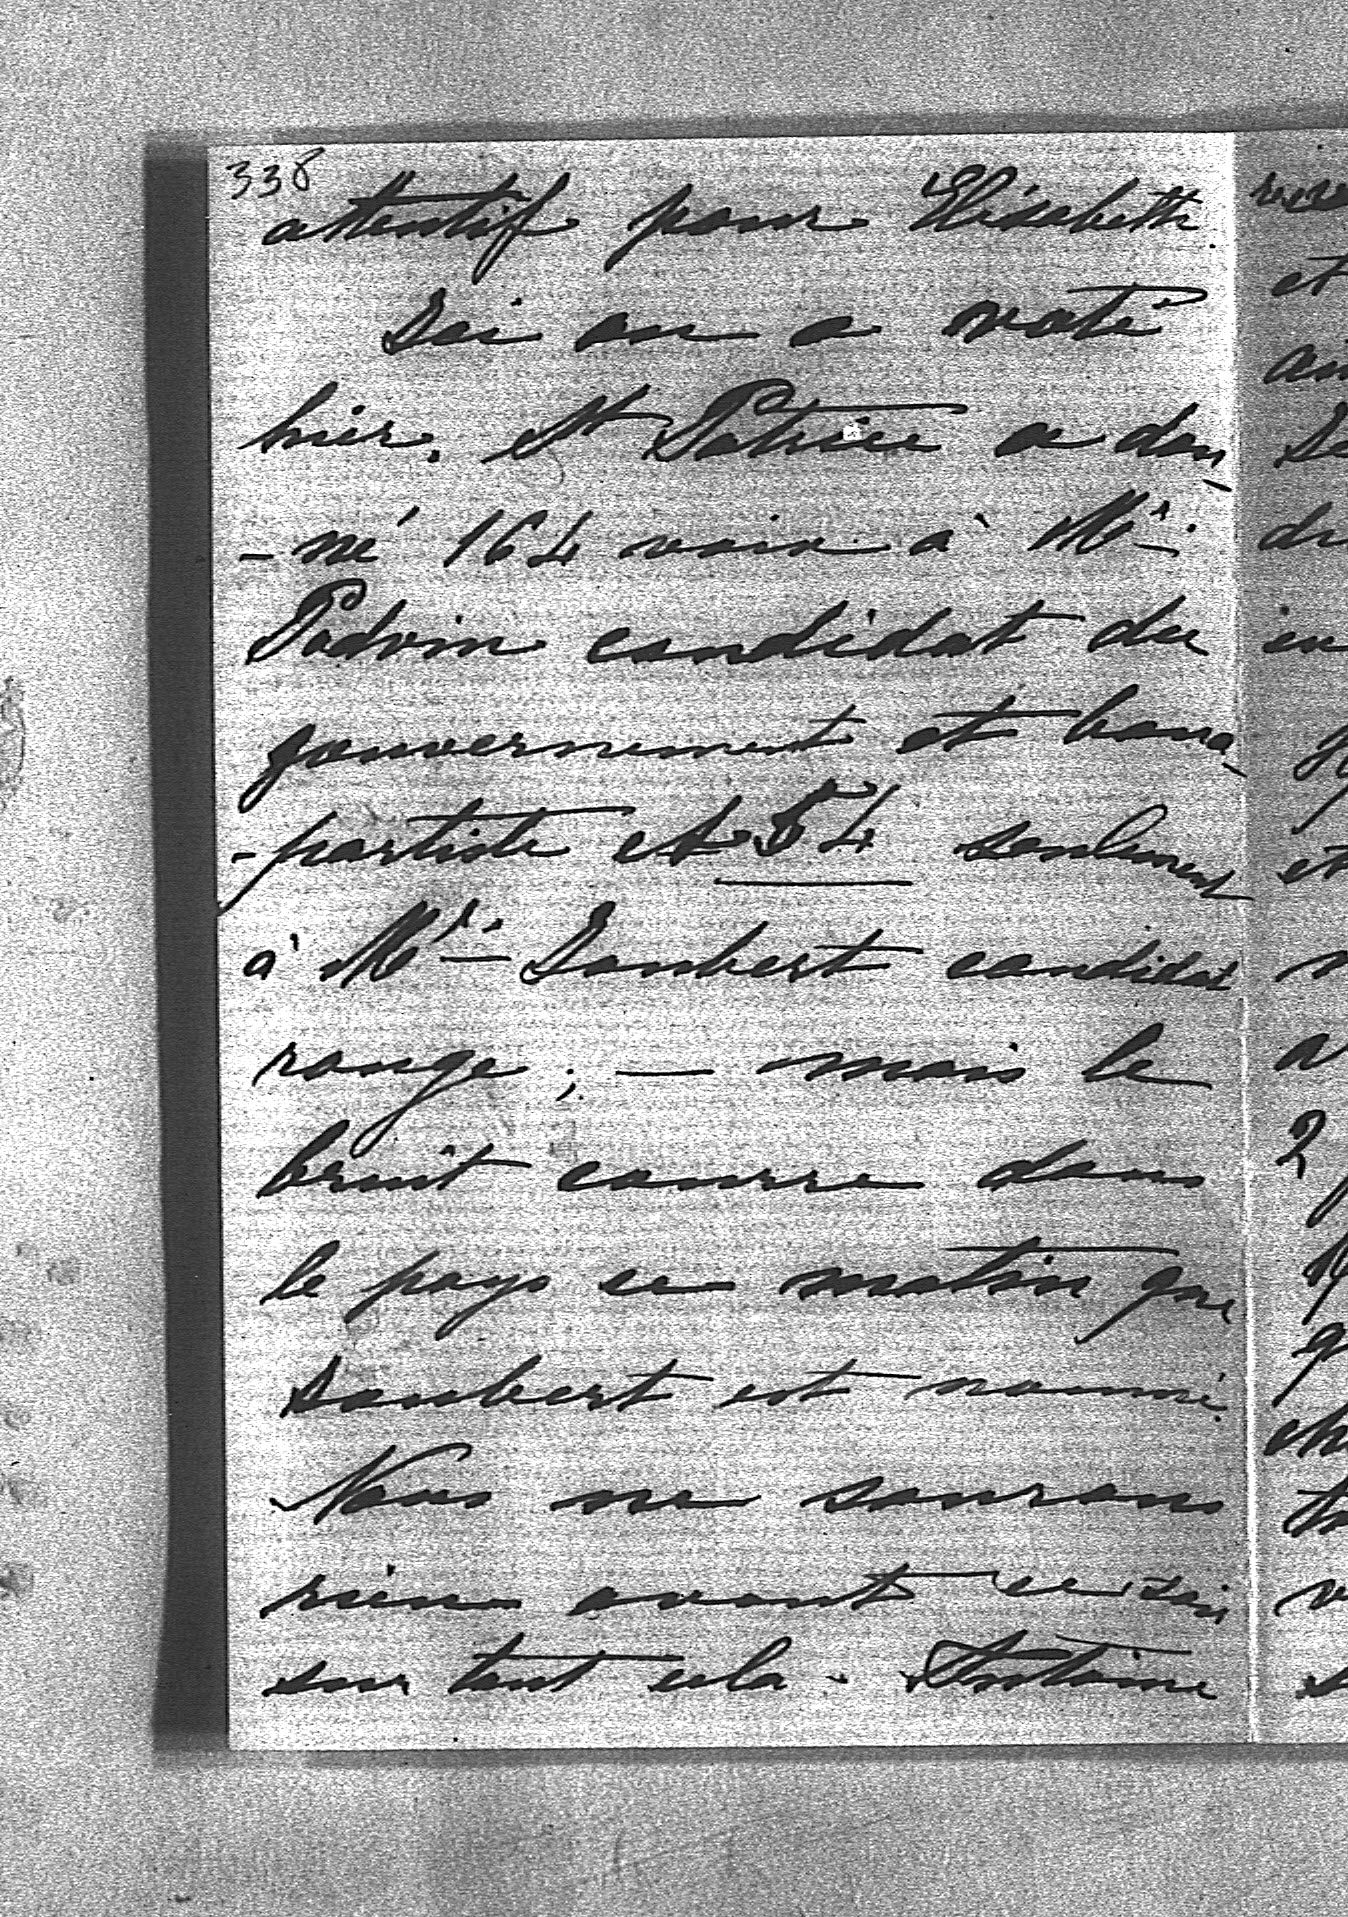 338
attentif pour Elisabeth.
Ici on a voté
hier. St Patrice a don-
-né 164 voix à Mr.
Podvin candidat du
gouvernement et bona-
-partiste et 54 seulment
à Mr. Joubert candidat
rouge ; — mais le
bruit courre dans
le pays ce matin que
Joubert est nommé.
Nous ne saurons
rien avant ce soir
sur tout cela. Antoine